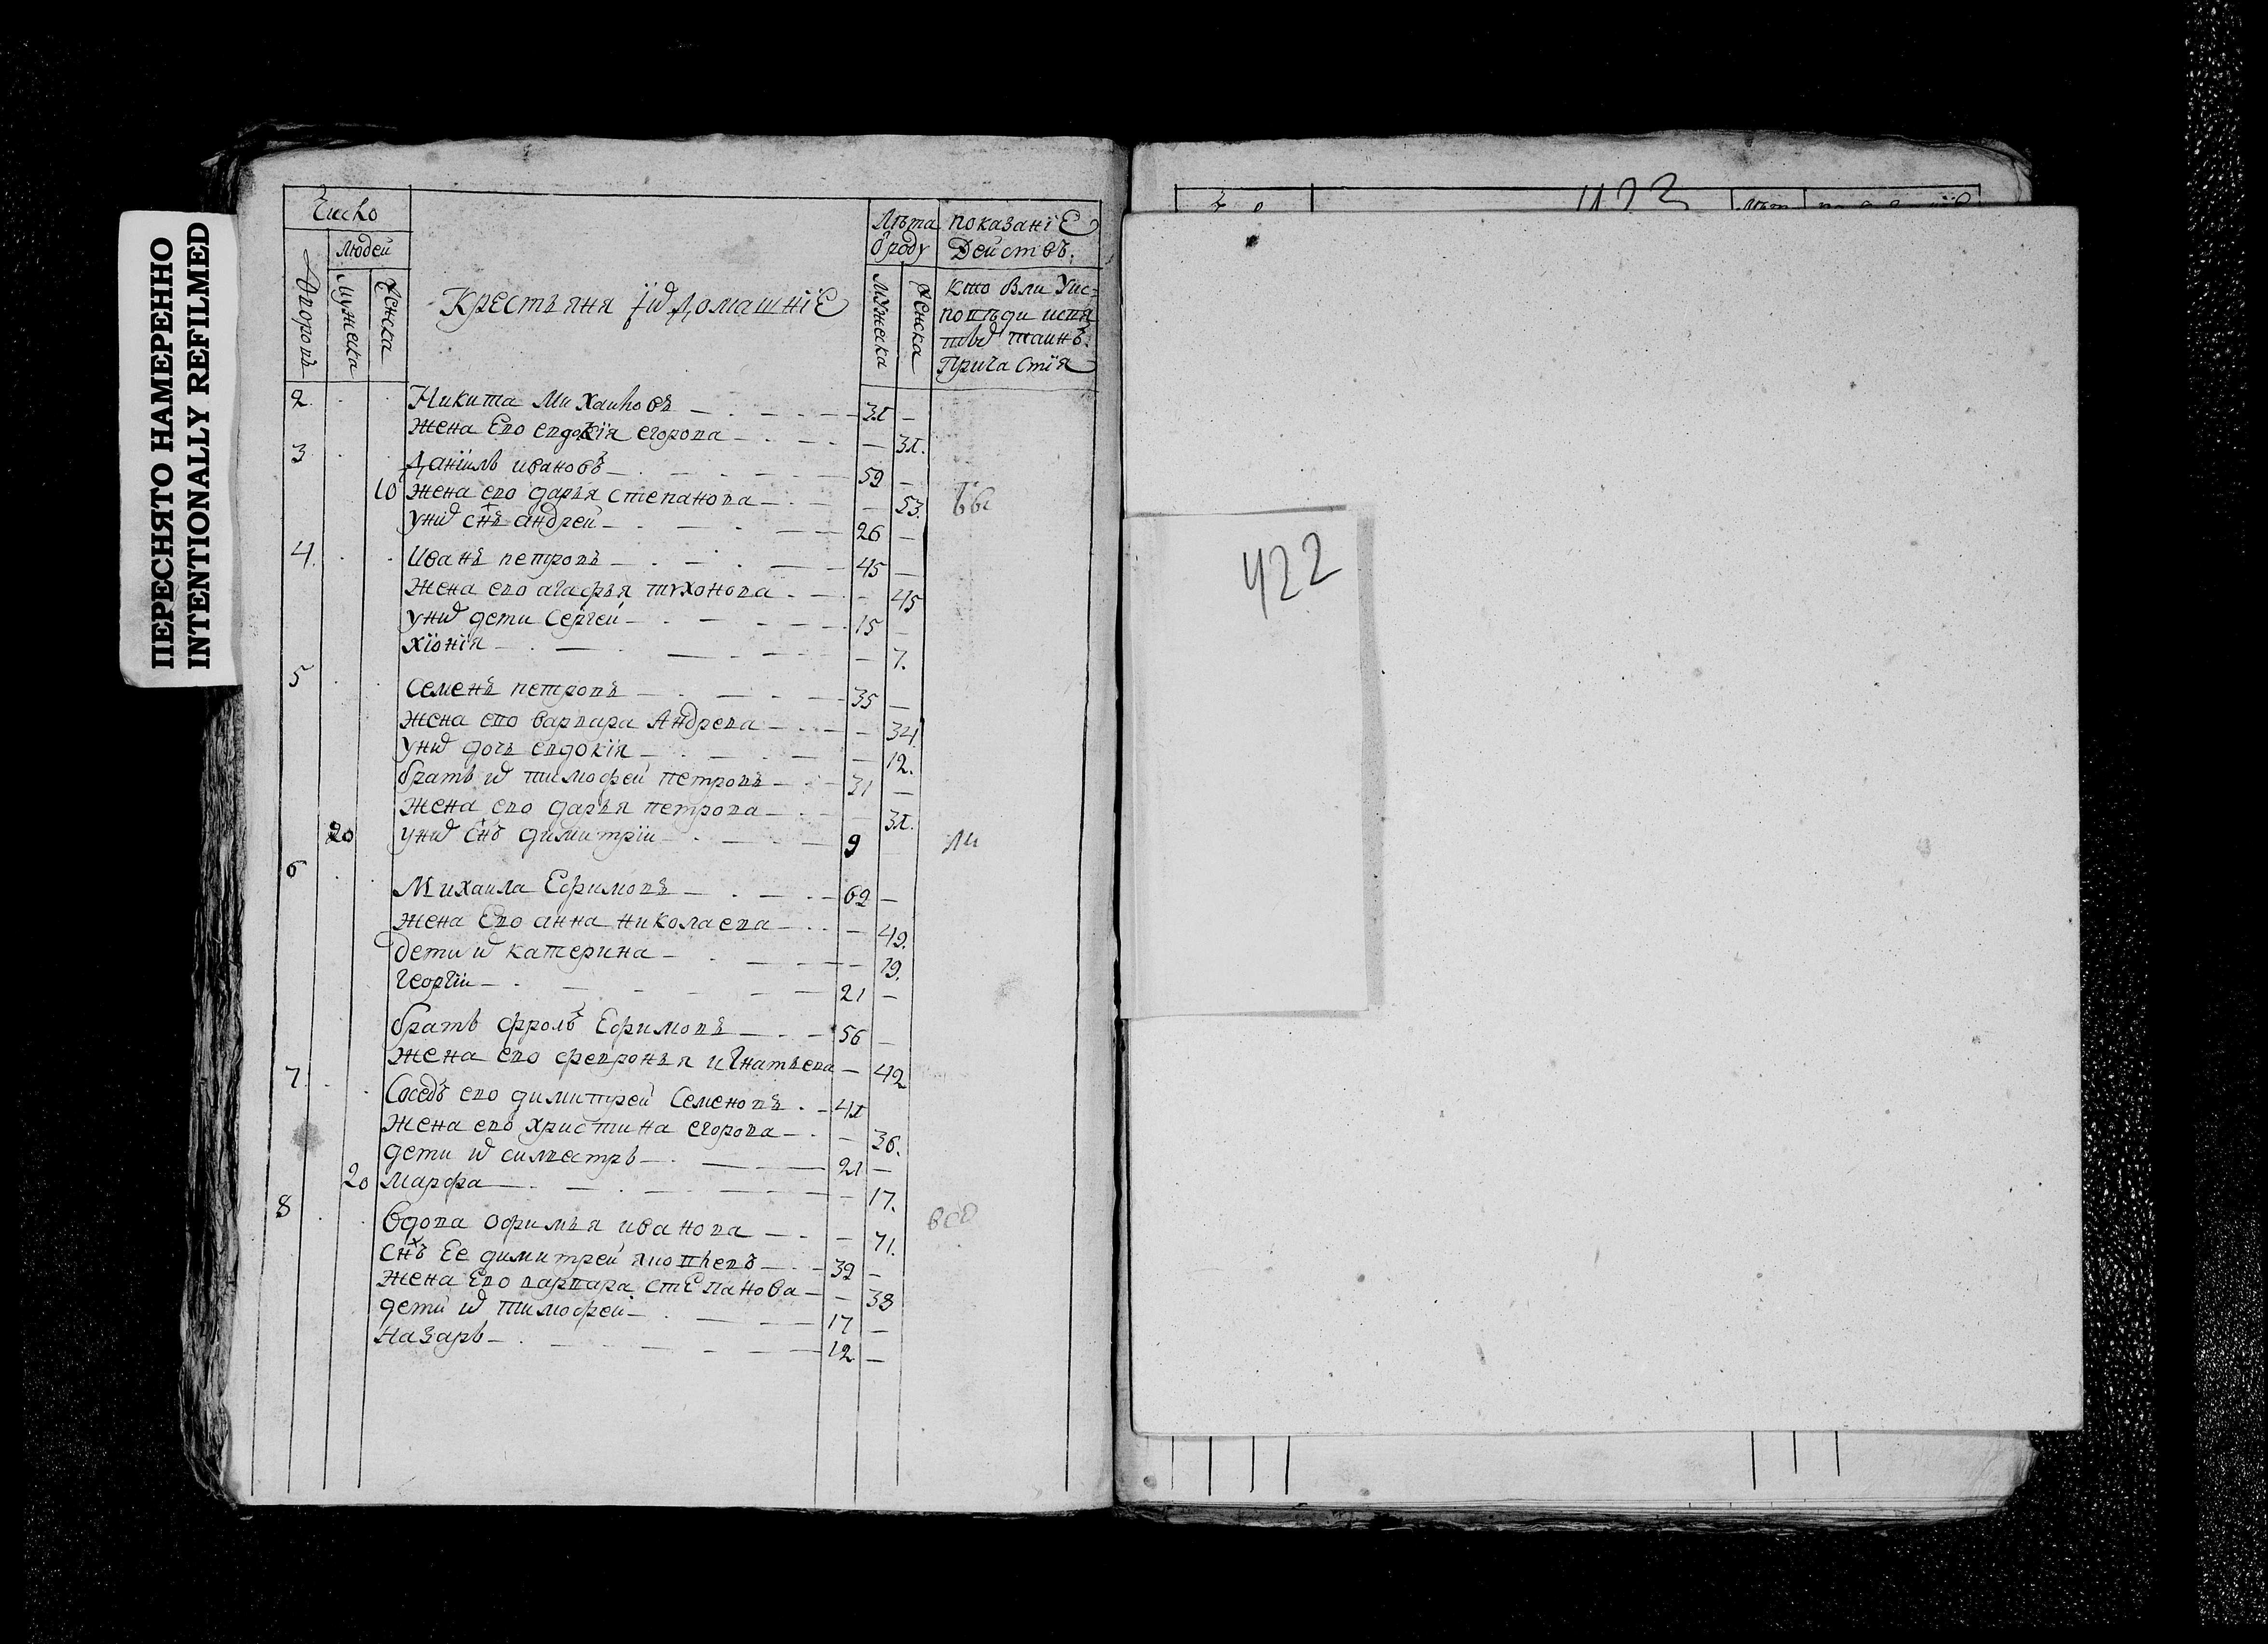 ПЕРЕСНЯТО НАМЕРЕННО
INTENTIONALLY REFILMED
Число
людей
Дворовъ
Мужеска
Женска
Крестьяня ихъ домашніе
Лѣта
ѿроду
Мужеска
Женска
показаніе
Действъ.
Кто были Уис-
поведи исвя
тыѯ таинъ
Причастія
2. Никита Михаиловъ 31 —
жена Ево евдокія егорова — 31.
3 Даніилъ ивановъ 59 —
10 жена ево дарья степанова — 53. бы
униѯ снъ андреи 26 —
4. Иванъ петровъ 45 —
Жена ево агафья тихонова — 45
униѯ дети Сергеи 15 —
хіонія — 7.
5 Семенъ петровъ 35 —
жена ево варвара Андрева — 34
униѯ дочь евдокія — 12.
братъ иѯ тимофеи петровъ 31 —
жена ево дарья петрова — 31.
20 униѯ снъ димитріи 9 ли
6 Михаила Ефимовъ 62 —
жена Ево анна николаева — 49.
дети иѯ катерина — 19.
георгіи 21 —
братъ фролъ Ефимовъ 56 —
жена ево февронья игнатьева — 42
7. Соседъ ево димитреи Семеновъ 41
жена ево христина егорова — 36.
дети иѯ силвестръ 21 —
20 марфа — 17.
8 вдова офимья иванова — 71. всѣ
снъ Ее димитреи 39 —
жена Ево варвара степанова — 38
дети иѯ тимофеи 17 —
назаръ 12 —
422
422